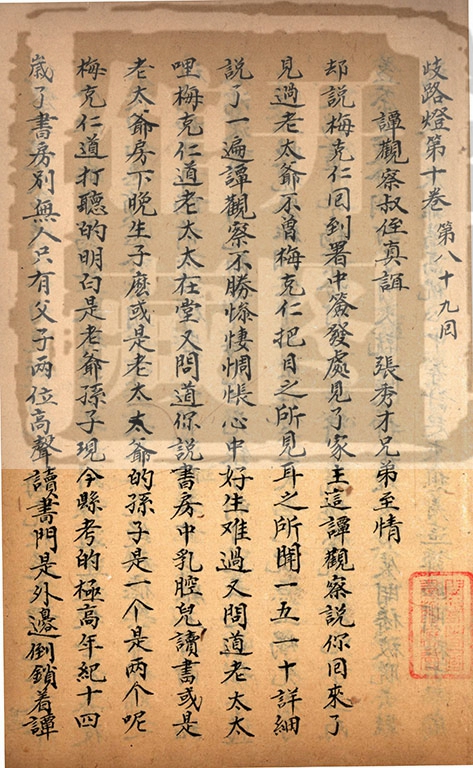 歧路燈第十卷 第八十九囘
譚觀察叔侄真誼 張秀才兄弟至情
却說梅克仁囘到署中簽發處見了家主這譚觀察說你囘來了
見過老太爺不曾梅克仁把目之所見耳之所聞一五一十詳細
說了一遍譚觀察不勝慘悽惆悵心中好生难過又問道老太太
哩梅克仁道老太太在堂又問道你說書房中乳腔兒讀書或是
老太爺房下晚生子麽或是老太太爺的孫子是一个是两个呢
梅克仁道打聽的明白是老爺孫子現今縣考的極高年紀十四
歲了書房別無人只有父子两位高聲讀書門是外邉倒鎖着譚